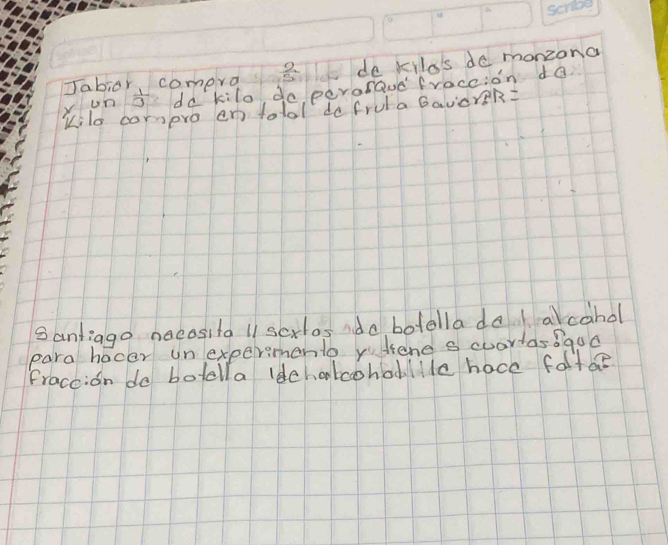 scribe
Jabier compro 2/5 de kilos de monzana
y un 1/3 de kilo de peras que fracción de
kilo compro en total de fruta Bavier R=
Santiago nacesita 11 sextos de botella de alcohol
para hacer un experimento y tiene 5 cuartas ¿que
fracción de botella de alcohol le hace falta?